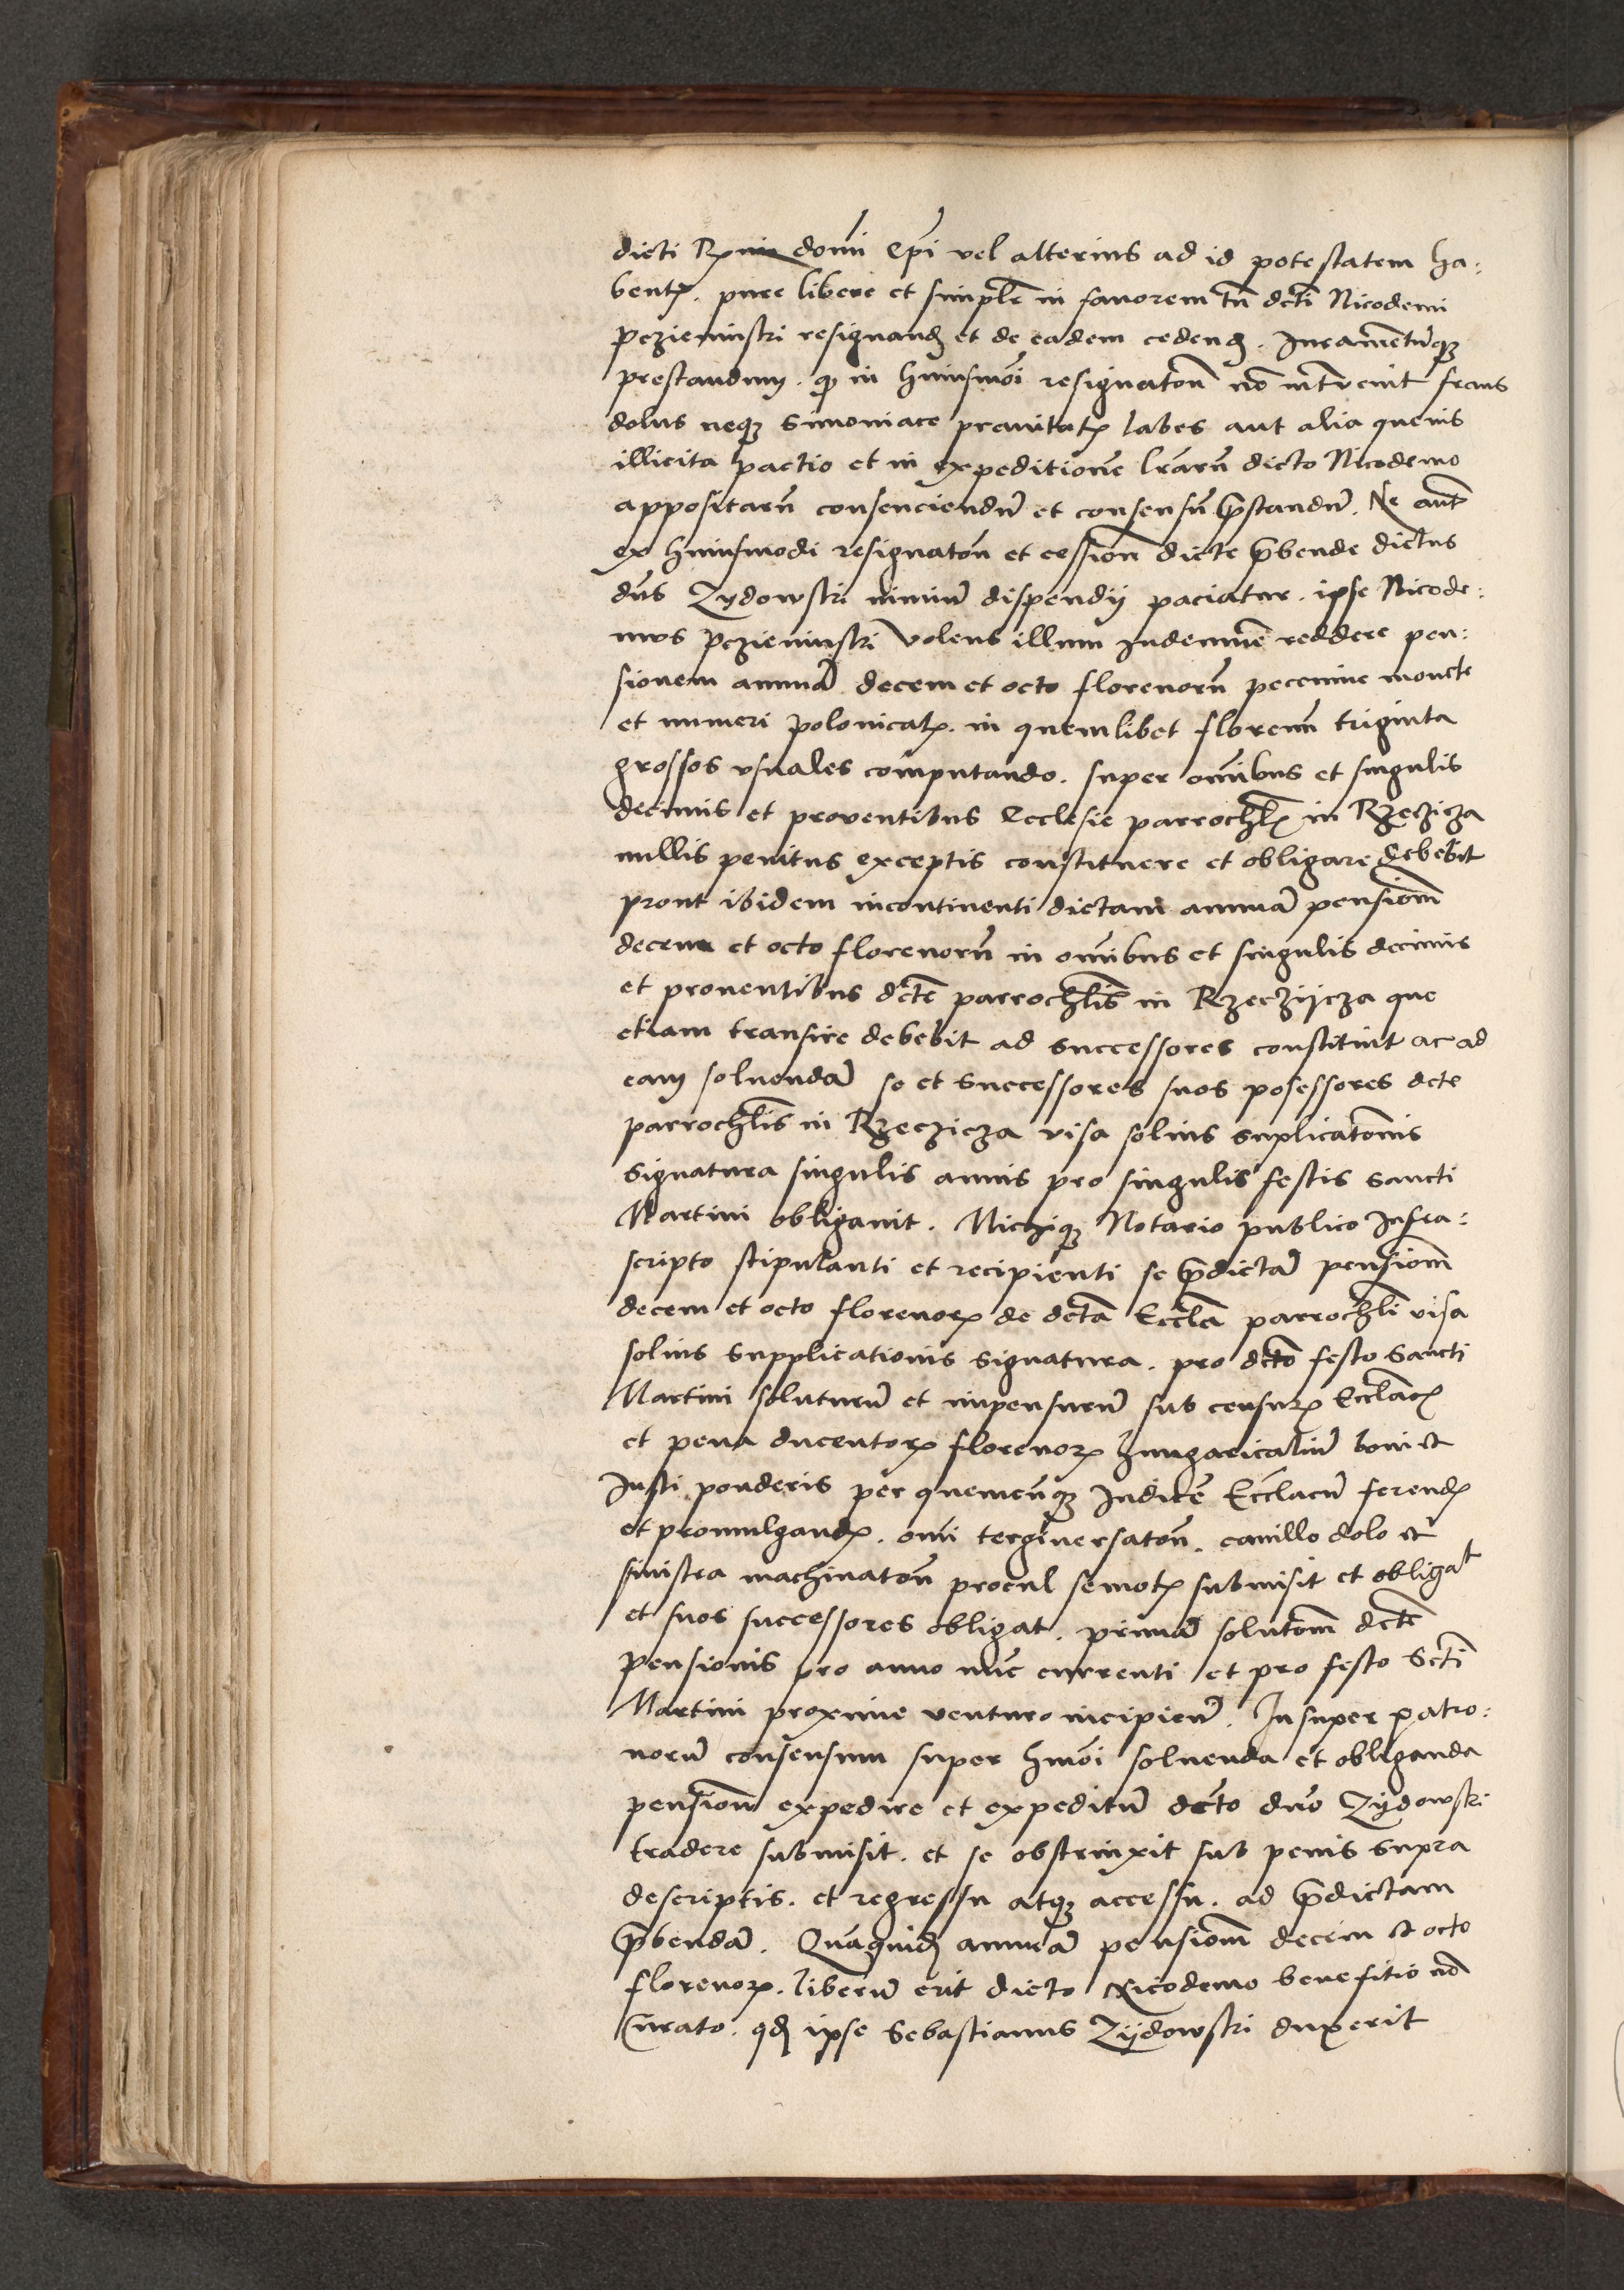 dicti Rmi domi Epi vel alterius ad id potestatem ha:
bentꝭ. pure libere et simplr in fauorem tn dcti Nicodemi
Pczieninski resignand et de eadem cedend. Iuramentumqꝫ
prestandum. qꝫ in huiusmoi resignatōn nō intrvenit fraus
dolus neqꝫ simoniace prauitatꝭ labes aut alia queuis
illicita pactio et in expeditione lrarū dicto Nicodemo
appositarū consenciendū et consensū p̄standū. Ne aut
ex huiusmodi resignatōn et cessionē dicte p̄bende dictus
dns Zydowski nimiū dispendij paciatur. ipse Nicode:
mus Pczieninski volens illum indemnē reddere pen:
sionem annuā decem et octo florenorū peccunie monete
et numeri polonicalꝭ. in quemlibet florenū triginta
grossos vsuales computando. super omībus et singulis
decimis et proventibus Ecclesie parrochlꝭ in Rzeczicza
nullis penitus exceptis constituere et obligare debebit
prout ibidem incontinenti dictam annuā pensionē
decem et octo florenorū in omībus et singulis decimis
et prouentibus dcte parrochlis in Rzeczijcza que
etiam transire debebit ad successores constituit ac ad
eam soluendā se et successores suos posessores dcte
parrochlis in Rzeczicza visa solius suplicatōnis
signatura singulis annis pro singulis festis sancti
Martini obligauit. Michiqꝫ Notario publico Infra:
scripto stipulanti et recipienti se p̄dictā pensionē
decem et octo florenorꝝ de dcta Eccla parrochli visa
solius supplicationis signatura. pro dcto festo Sancti
Martini soluturū et impensurū sub censurꝭ Ecclacꝭ
et pena ducentorꝝ florenorꝝ hungaricaliū boni et
Iusti ponderis per quemcunqꝫ Iudicē Ecclacū ferendꝭ
et promulgandꝭ. omi tergiuersatōn. cauillo dolo et
sinistra machinatōn procul semotꝭ submisit et obligat
et suos successores obligat. primā solutōm dcte
pensionis pro anno nūc currenti et pro festo Scti
Martini proxime venturo incipien. Insuper patro:
norū consensum super hmoi soluenda et obliganda
pensionē expedire et expeditū dcto dno Zijdowski
tradere submisit. et se obstrinxit sub penis supra
descriptis. et regressu atqꝫ accessu. ad p̄dictam
p̄bendā. Quāquid annuā pensionē decem et octo
florenorꝝ. liberū erit dicto Nicodemo benefitio nō
Curato. qd ipse Sebastianus Zijdowski duxerit